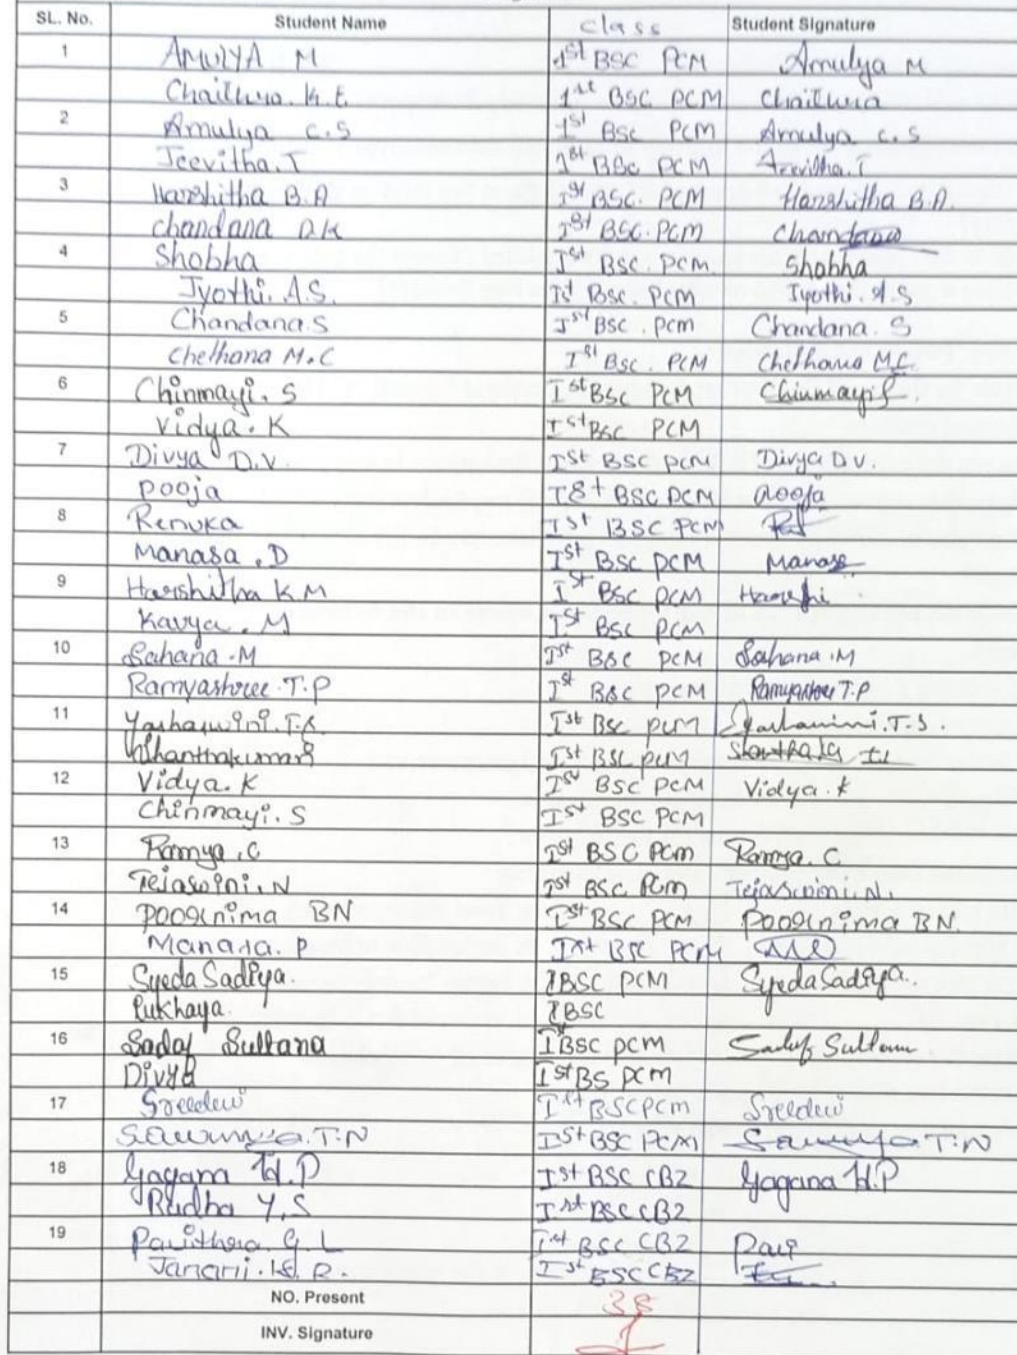 SL. No. Student Name Class Student Signature
1 AMULYA M 1st BSC PCM Amulya M
Chaithra. K.E. 1st BSC PCM Chaithra
2 Amulya C.S 1st BSC PCM Amulya C.S
Jeevitha.T 1st BSc PCM Jeevitha.T
3 Harshitha B.A Ist BSC. PCM Harshitha B.A.
Chandana D.K Ist BSC. PCM Chandana
4 Shobha Ist BSC. PCM. Shobha
Jyothi. A.S. Ist Bsc. PCM Jyothi. A.S
5 Chandana.S Ist BSC. PCM Chandana. S
Chethana M.C Ist BSC. PCM Chethana M.C.
6 Chinmayi. S Ist BSC PCM Chinmayi S
Vidya. K Ist BSC PCM
7 Divya D.V. Ist BSC PCM Divya D.V.
Pooja Ist BSC PCM Pooja
8 Renuka Ist BSC PCM
Manasa .D Ist BSC PCM Manasa
9 Harshitha K.M Ist BSC PCM Harshi
Kavya. M Ist BSC PCM
10 Sahana .M Ist BSC PCM Sahana .M
Ramyashree T.P Ist BSC PCM Ramyashree T.P
11 Yashaswini.T.S. Ist BSC PCM Yashaswini.T.S.
Ist BSC PCM
12 Vidya. K Ist BSC PCM Vidya. K
Chinmayi. S Ist BSC PCM
13 Ramya .C Ist BSC PCM Ramya. C
Tejaswini. N Ist BSC PCM Tejaswini. N.
14 Poornima BN Ist BSC PCM Poornima BN.
Manasa. P Ist BSC PCM
15 Syeda Sadiya. I BSC PCM Syeda Sadiya.
Rukhaya. I BSC
16 Sadaf Sultana I BSC PCM Sadaf Sultana
Divya Ist BS PCM
17 Sreedevi Ist BSC PCM Sreedevi
Sowmya.T.N Ist BSC PCM Sowmya T.N
18 Gagana H.P Ist BSC CBZ Gagana H.P
Radha Y.S Ist BSC CBZ
19 Pavithra. G. L Ist BSC CBZ Pavi
Janani. R. Ist BSC CBZ
NO. Present 38
INV. Signature